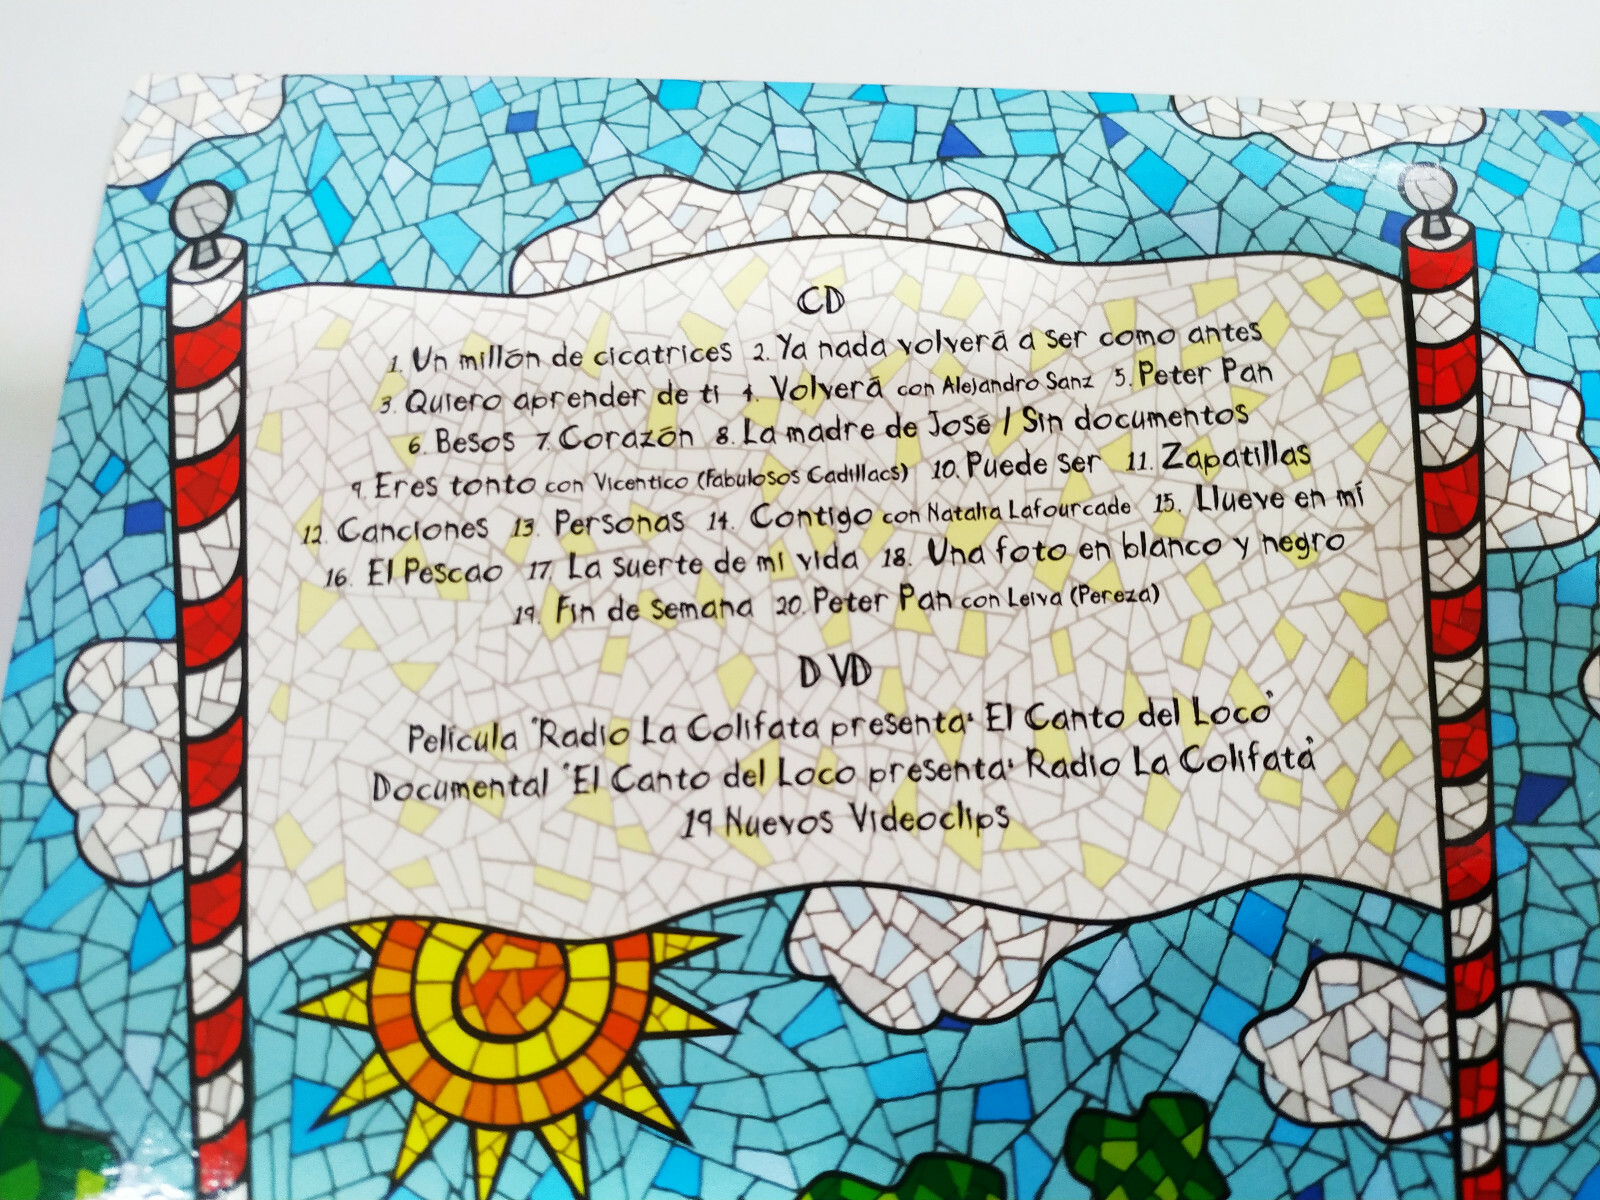 CD
1. Un millón de cicatrices 2. Ya nada volverá a ser como antes
3. Quiero aprender de ti 4. Volverá con Alejandro Sanz 5. Peter Pan
6. Besos 7. Corazón 8. La madre de José / Sin documentos
9. Eres tonto con Vicentico (Fabulosos Cadillacs) 10. Puede ser 11. Zapatillas
12. Canciones 13. Personas 14. Contigo con Natalia Lafourcade 15. Llueve en mí
16. El Pescao 17. La suerte de mi vida 18. Una foto en blanco y negro
19. Fin de semana 20. Peter Pan con Leiva (Pereza)
DVD
Película "Radio La Colifata presenta: El Canto del Loco"
Documental "El Canto del Loco presenta: Radio La Colifata"
19 Nuevos Videoclips